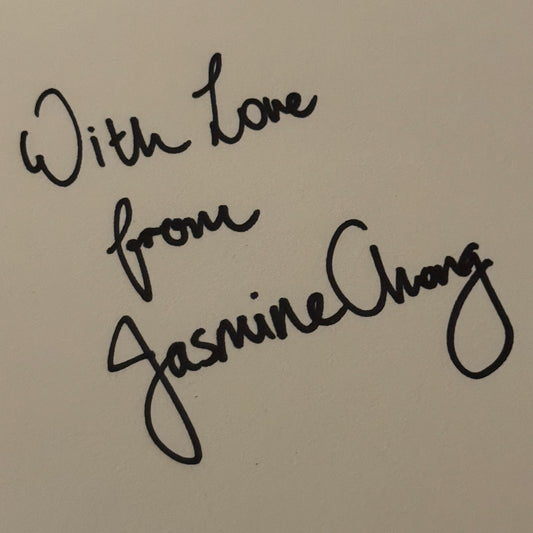 With Love
from
Jasmine Chong